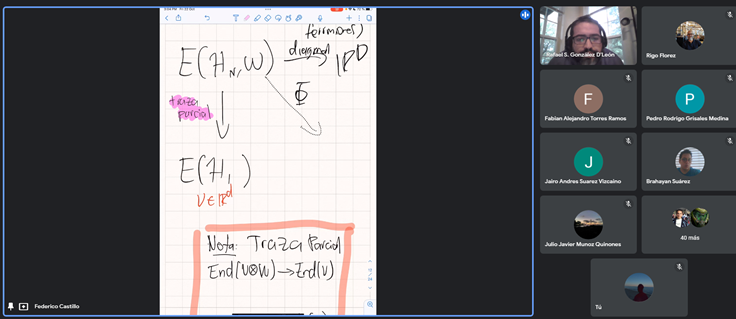 fermiones)
E(H_N, W) diagonal ℝ^D
Φ
traza
parcial
E(H_1)
ν∈ℝ^d
Nota: Traza Parcial
End(V⊗W)→End(V)
Federico Castillo
Rafael S. González D'León
Rigo Florez
F
Fabian Alejandro Torres Ramos
P
Pedro Rodrigo Grisales Medina
J
Jairo Andres Suarez Vizcaino
Brahayan Suárez
Julio Javier Munoz Quinones
40 más
Tú